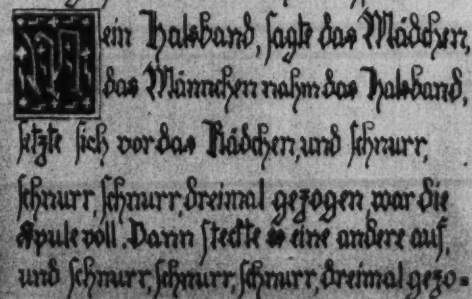 Mein Halsband, sagte das Mädchen,
das Männchen nahm das Halsband,
setzte sich vor das Rädchen, und schnurr,
schnurr, schnurr, dreimal gezogen war die
Spule voll. Dann steckte es eine andere auf,
und schnurr, schnurr, schnurr, dreimal gezo=